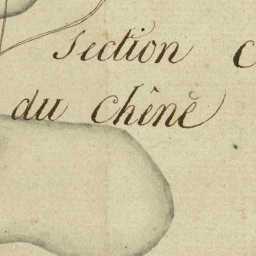 Section C
du Chêne